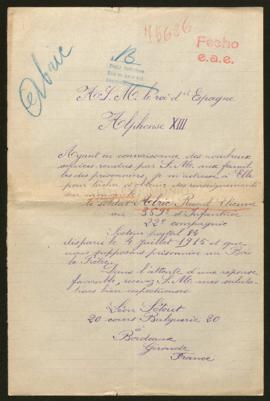 45686
Fecho
e.a.e.
A. S. M. le roi d'Espagne
Alphonse XIII
Ayant eu connaissance des nombreux
services rendus par S. M. aux famil
les des prisonniers, je m'adresse à Elle
pour tâcher d'obtenir des renseignements
le soldat Albric Raoul Etienne
au 35 d'Infanterie
22e compagnie
Secteur postal
disparu le 4 juillet 1915 et que
nous supposons prisonnier au Bois
le Prêtre.
Dans l'attente d'une réponse
favorable, recevez S. M. mes saluta
tions bien respectueuses
Léon
20 cours Bulguerie 20
Bordeaux
Gironde
France